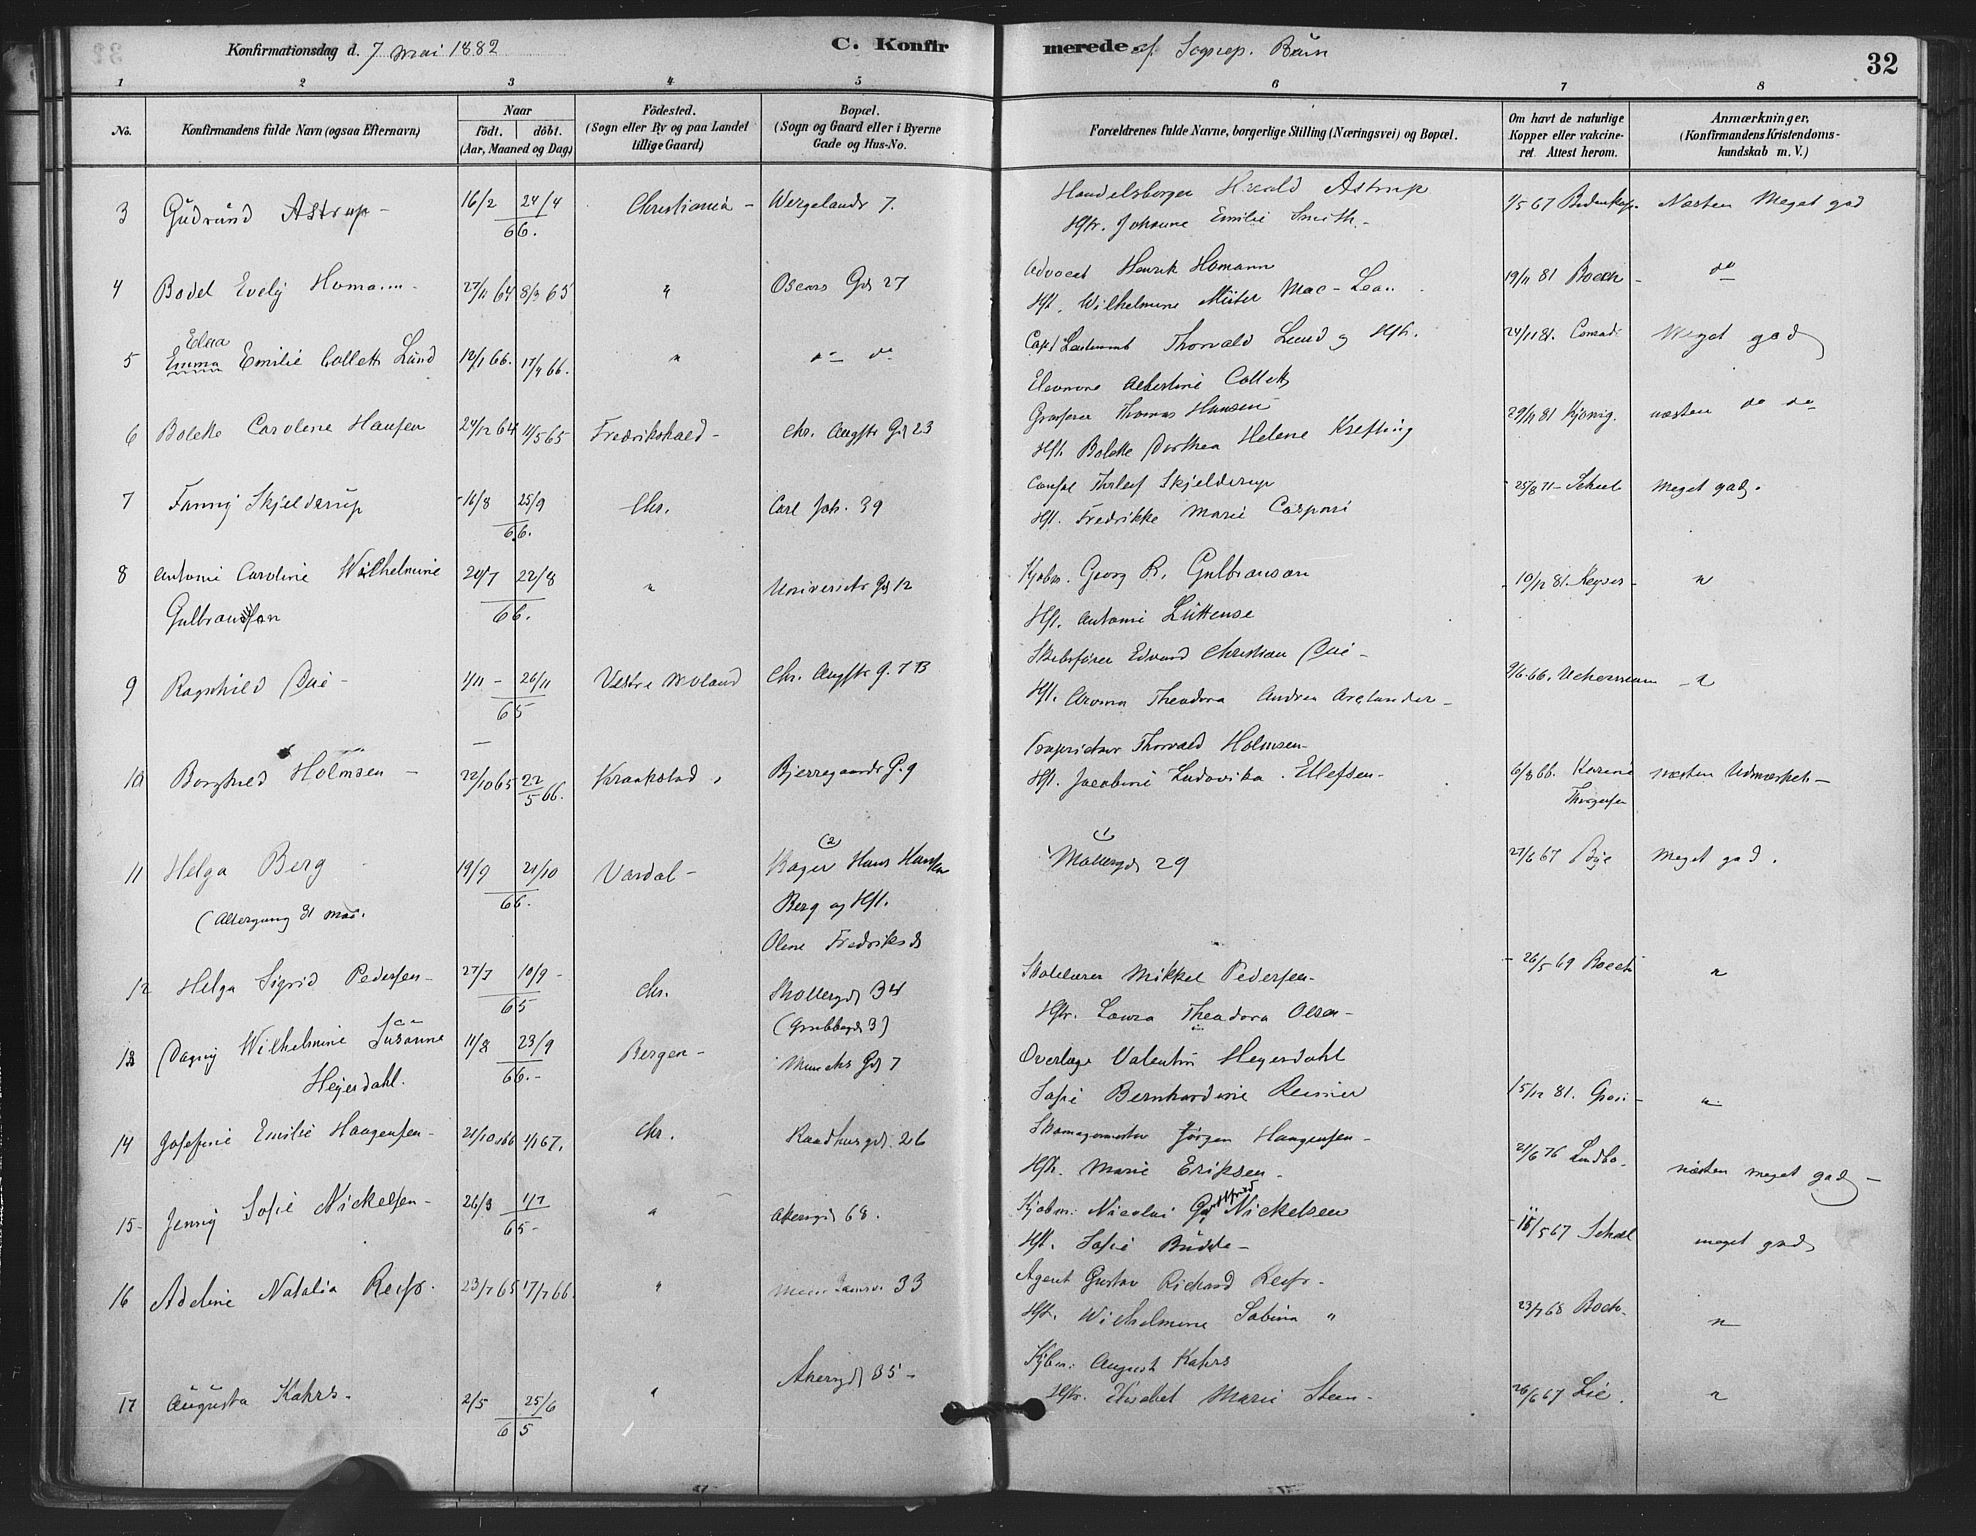 Konfirmationsdag d. 7 mai 1882
C. Konfirmerede af Sogнep. Bruun
32
1 2 3 4 5 6 7 8
No.
Konfirmandens fulde Navn (ogsaa Efternavn)
Naar
födt. döbt.
(Aar, Maaned og Dag)
Födested.
(Sogn eller By og paa Landet
tillige Gaard)
Bopæl.
(Sogn og Gaard eller i Byerne
Gade og Hus-No.
Forældrenes fulde Navne, borgerlige Stilling (Næringsvei) og Bopæl.
Om havt de naturlige
Kopper eller vakcine-
ret Attest herom.
Anmærkninger,
(Konfirmandens Kristendoms-
kundskab m. V.)
3 Gudrund Astrup - 16/2 24/4 66. Christiania - Wergelands 7.
Handelsborger Harald Astrup
Hstr. Johanne Emilie Smith.-
1/5 67 Næsten Meget god
4 Bodel Evely Homann - 27/11 64 8/3 65 " Oscars Gd 27
Advocat Henrik Homann
Hst. Wilhelmine Müter Mac-Lean
19/11 81 Boeck - do
5 Elna
Emma Emilie Collett Lund 12/1 66. 17/4 66. " do do
Capt Leutenant Thorvald Lund og Hstr.
Eleonore Albertine Collett
24/11 81. Conradi Meget god
6 Bolette Caroline Hansen 24/12 64 4/5 65 Fredrikshald - Chr. Augsts Gd 23
Grosserer Thomas Hansen
Hst. Bolette Dorthea Helene Krefting
29/11 81 Kjönig. næsten do do
7 Fanny Skjelderup - 16/8 25/9 66. Chr. Carl Joh. 39
Consul Thorleif Skjelderup
Hst. Fredrikke Marie Caspari
25/8 71 - Scheel Meget god.
8 Antonie Caroline Wilhelmine
Gulbransson 20/7 22/8 66. " Universits Gd 12
Kjøbm. Georg R. Gulbranson
Hst. Antonie Lüttense
10/12 81. Keyser - "
9 Ragnhild Due - 1/11 - 26/11 65 Vestre Moland Chr. Augsts G. 7 B
Skibsfører Edvard Christian Due -
Hst. Theodora Andrea Arelander -
9/6 66. Uchermann - "
10 Borghild Holmsen - 22/10 65 22/5 66. Kraakstad, Bjerregaards G. 9
Proprietær Thorvald Holmsen -
Hst. Jacobine Ludovika. Ellefsen -
6/8 66. Karine
Thorgersen næsten Udmærket -
11 Helga Berg 19/9 21/10 66. Vardal -
(Altergang 21 mai.
(2)
Bager Hans Hansen
Berg og Hst.
Olene Fredriksd
(1)
Møllergd 29
27/6 67 Bye Meget god.
12 Helga Sigrid Pedersen - 27/7 10/9 - 65 Chr. Møllergd 34
(Grubbegd 3)
Skolelærer Mikkel Pedersen -
Hstr. Laura Theodora Olsen -
- 26/5 69 Boeck "
13 Dagny Wilhelmine Susanne
Heyerdahl. 11/8 23/9 66.- Bergen - Munchs Gd 7
Overlæge Valentin Heyerdahl
Sofie Bernhardine Reimer
15/12 81. "
14 Josefine Emilie Haagensen - 21/10 66 1/1 67. Chr. Raadhusgd. 26
Skomagermester Jörgen Haagensen -
Hstr. Marie Eriksen -
21/6 76 Lindbo. næsten meget god -
15 - Jenny Sofie Nickelsen - 26/3 1/7 65 - " Akersgd 68.
Kjøbm: Nicolai Gottfred Nickelsen
Hst. Sofie Budde -
- 15/5 67 Scheel meget god
16 Adeline Natalia Reifs. 23/7 65 17/7 66. " 33
Agent Gustav Richard Reifs -
Hst. Wilhelmine Sabina "
23/7 68 Boeck "
17 Augusta Kahrs - 2/5 25/6 65 " Akersgd 35 -
Kjbm: August Kahrs
Hstr. Elisabet Marie Steen -
26/6 67 Lie. "